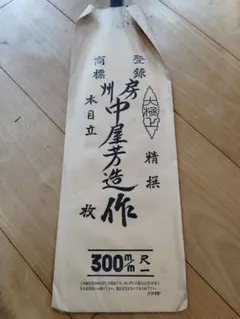 登録
商標
大極上
房州中屋芳造作
本目立
精撰
枚
300m/m
尺一